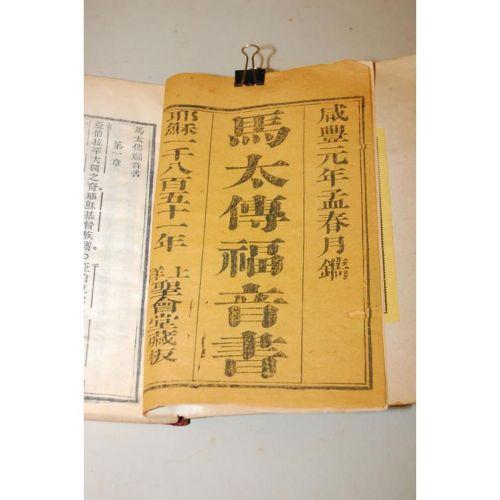 咸豐元年孟春月鐫
馬太傳福音書
耶穌一千八百五十一年
上羊聖會堂藏板
馬太傳福音書
第一章
亞伯拉罕大闢之裔。耶穌基督族譜。○